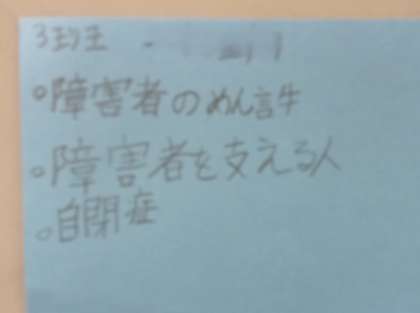 3班
○障害者のめん言牛
○障害者を支える人
○自閉症